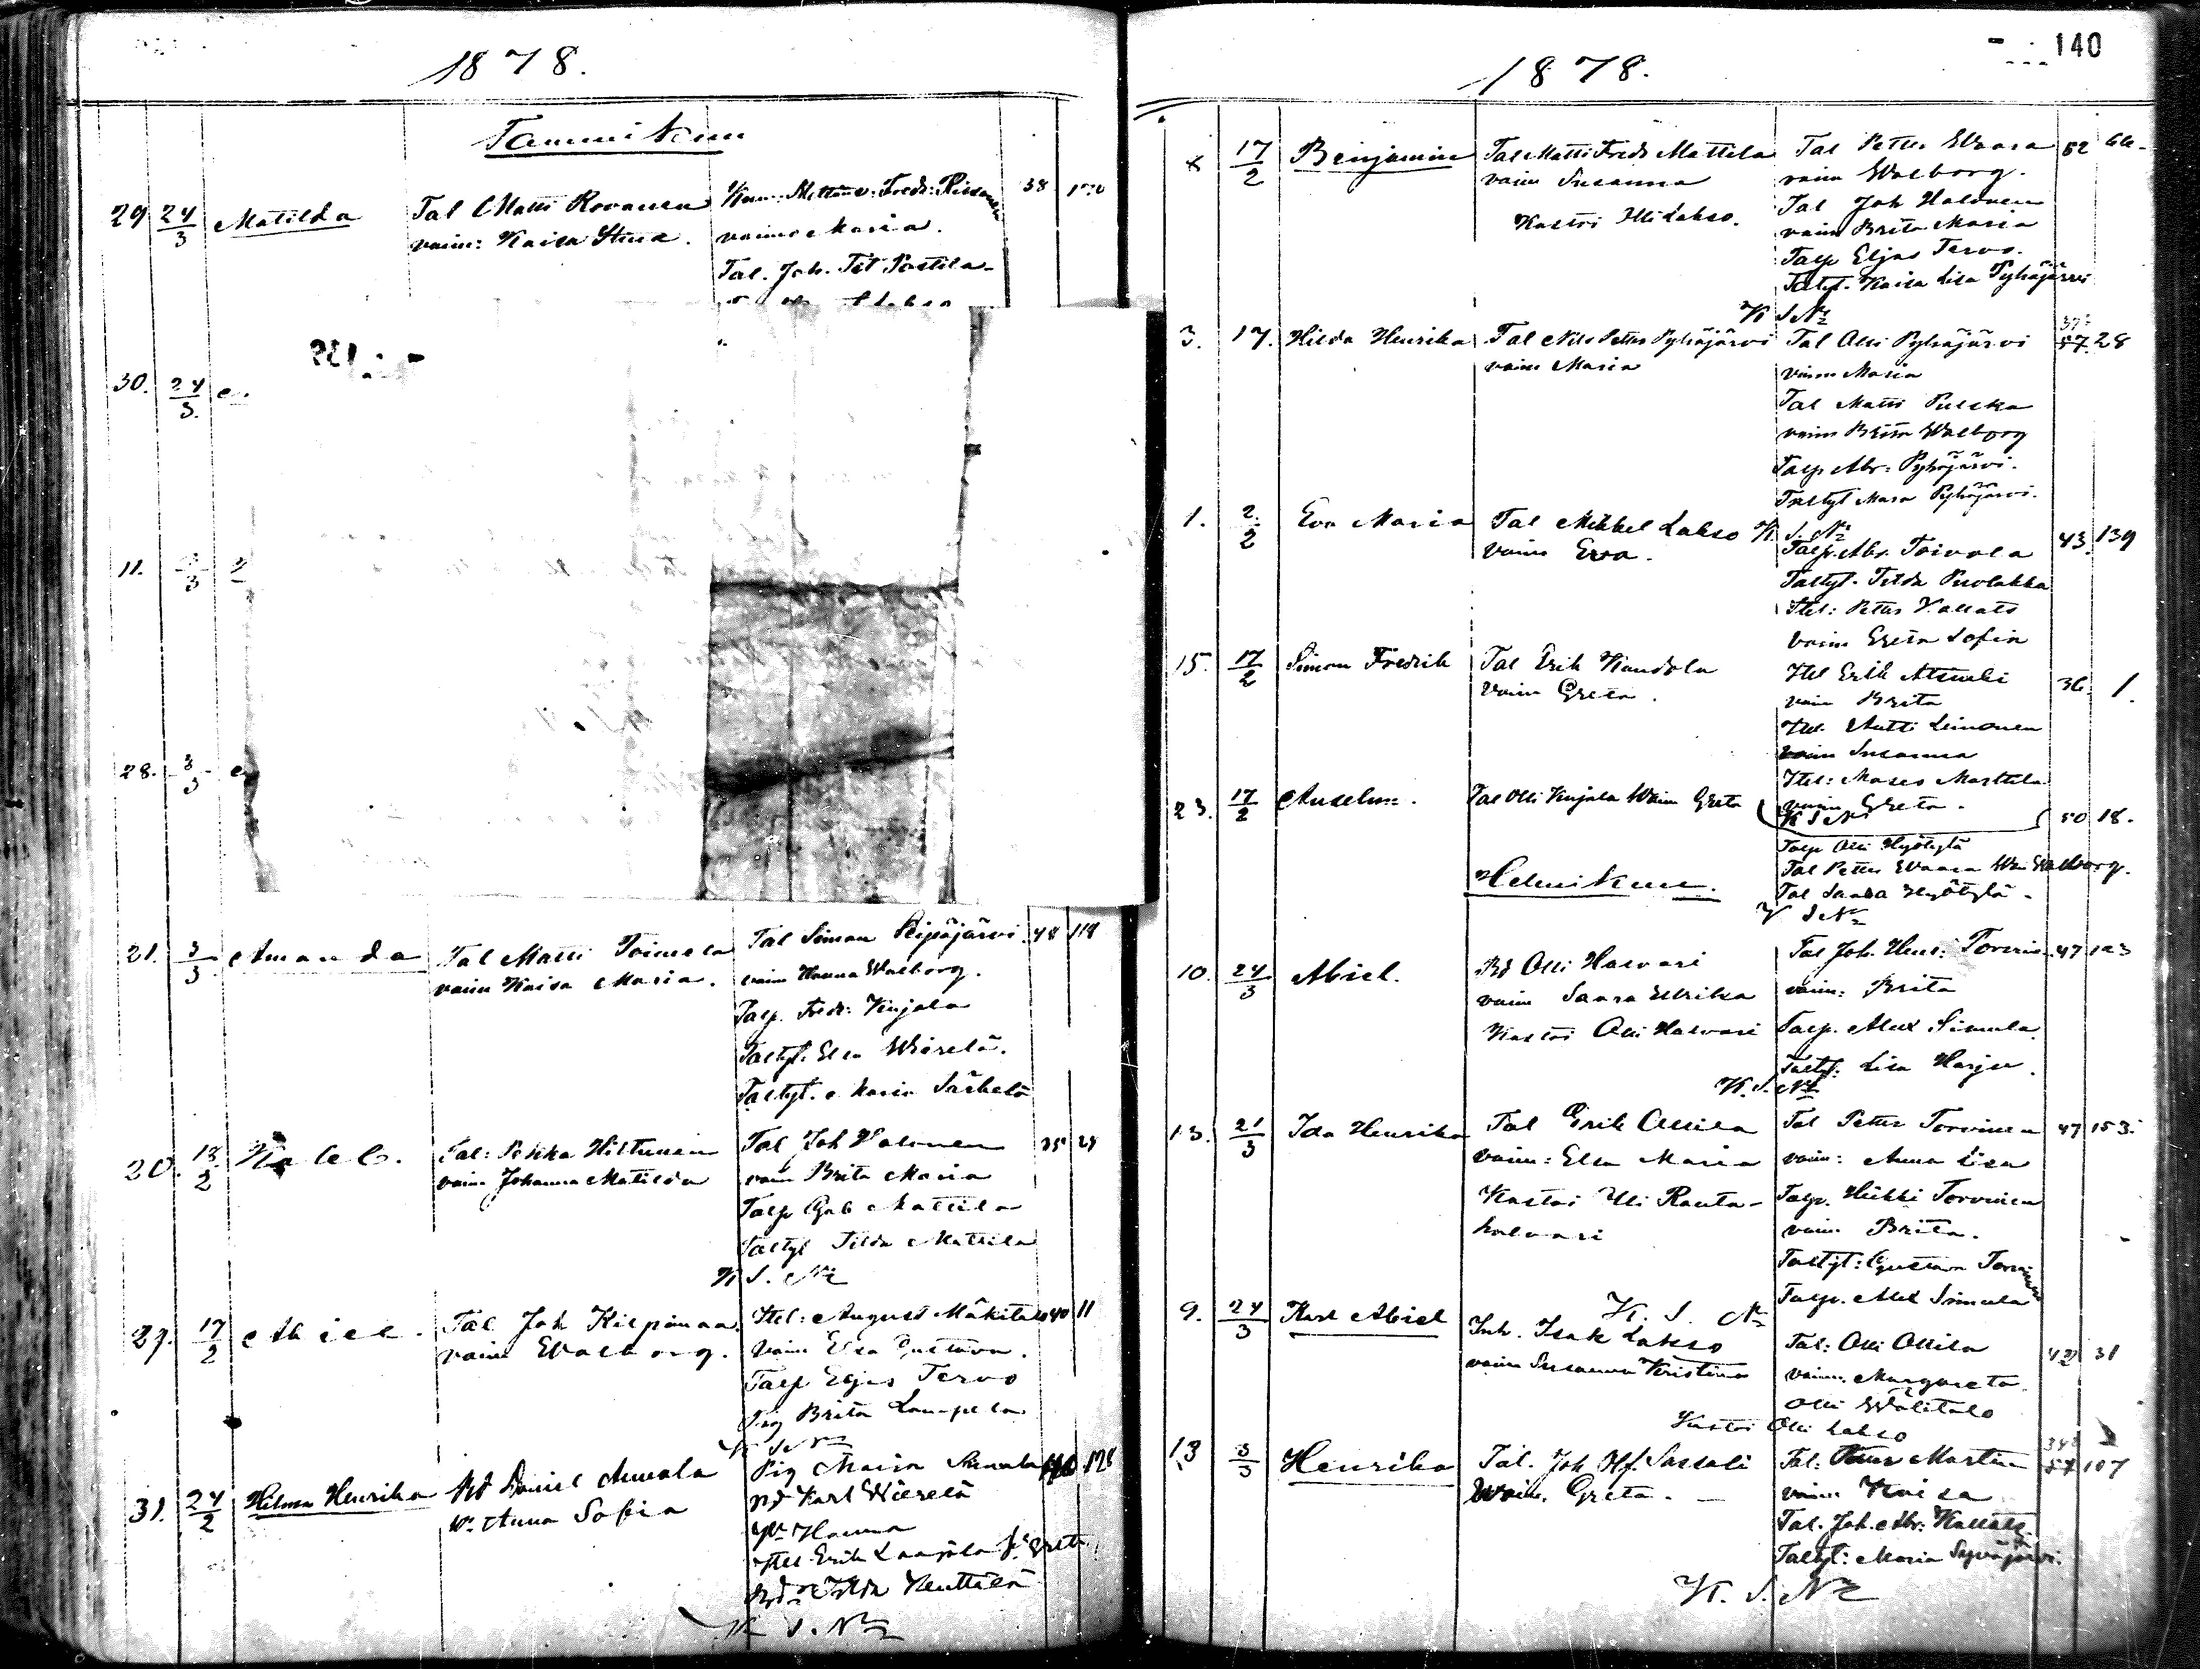 1878.
Tammikuu
29 24/3 Matilda Tal Matti Rovanen
vaim: Kaisa Stina.
vaimo Maria.
Tal. Joh. Pet Postila
38
30. 24/3.
11. /3
28. 3/3
21. 3/3 Amanda Tal Matti Toimela
vaim Kaisa Maria.
Tal Simon
vaim Hanna Walborg.
Talp. Fredr: Kinjala
Taltyt. Elsa Wierelä.
Taltyt. Maria Särkelä
48 118
20. 18/2 Tal: Pekka Hiltunen
vaim Johanna Matilda
Tal Joh Halonen
vaim Brita Maria
Talp Gab Mattila
Taltyt Tilda Mattila
K. S. Nz
35 28
29. 17/2 Abiel. Tal Joh Kilpimaa.
vaim Walborg.
Itel: August Mäkitalo
vaim Elsa Gustava.
Talp Eljas Tervo
Pig Brita Lampela
K S Nz
40 11
31. 24/2 Hilma Henrika Rd Daniel Annala
v: Anna Sofia
Pig Maria Annala
Rd Karl Wierelä
v: Hanna
Itel Erik Laajola v: Greta
Tilda Kenttälä
K S. Nz
128
140
1878.
8 17/2 Benjamin Tal Matti Fredr Mattila
vaim Susanna
Kastoi Olli Lakso.
Tal Petter Waara
vaim Walborg.
Tal Joh Halonen
vaim Brita Maria
Talp Eljas Tervo.
Taltyt. Kaisa Lisa Pyhäjärvi
K S Nz
52 66
3. 17. Hilda Henrika Tal Nils Petter Pyhäjärvi
vaim Maria
Tal Olli Pyhäjärvi
vaim Maria
Tal Matti Pulska
vaim Brita Walborg
Talp Abr: Pyhäjärvi.
Taltyt Maria Pyhäjärvi.
K. S. Nz
57. 28
1. 2/2 Eva Maria Tal Mikkel Lakso
vaim Eva.
Talp. Abr. Toivola
Taltyt. Tilda Puolakka
Itel: Petter Kallats
vaim Greta Sofia
43. 139
15. 17/2 Simon Fredrik Tal Erik Kandola
vaim Greta.
Itel Erik Alamäki
vaim Brita
Itel. Antti Leinonen
vaim Susanna
Itel: Moses Marttila
vaim Greta.
K S Nz
36. 1.
23. 17/2 Anselm. Tal Olli Kinjala Waim Greta
Talp Olli Hyötylä
Tal Petter Waara Wai Walborg.
Tal Saara Hyötylä
K S Nz
50 18.
Helmikuu.
10. 24/3 Abiel. Rd Olli Halvari
vaim Saara Ulrika
Kastoi Olli Halvari
Tal Joh. Henr: Torvin.
vaim: Brita
Talp. Alex Simula.
Taltyt: Lisa Harju.
K. S. Nz
47 123
13. 21/3 Ida Henrika Tal Erik Ollila
vaim: Elsa Maria
Kastoi Olli Rauta-
halvari
Tal Petter Torvinen
vaim: Anna Lisa
Talp. Heikki Torvinen
vaim Brita.
Taltyt: Gustava Torvinen
Talp. Alex Simula
K. S. Nz
47 153.
9. 24/3 Karl Abiel Inh. Isak Lakso
vaim Susanna Kristina
Tal: Olli Ollila
vaim: Margareta.
Olli Wälitalo
Kastoi Olli Lakso
42 31
13 3/3 Henrika Tal. Joh Olf. Sassali
Waim. Greta.
Tal: Martin
vaim Kaisa
Tal. Joh. Abr: Kallatz.
Taltyt: Maria Syväjärvi.
K. S. Nz
57 107